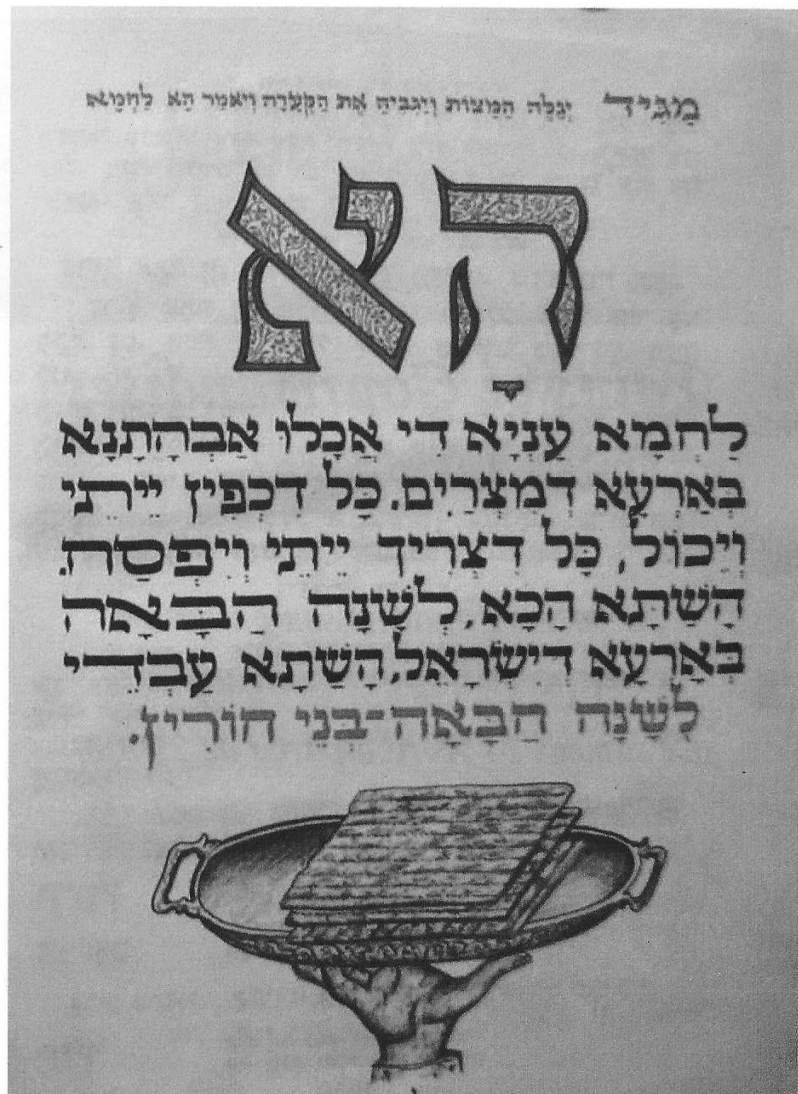 מַגִּיד יְגַלֶּה הַמַּצּוֹת וְיַגְבִּיהַּ אֶת הַקְּעָרָה וְיֹאמַר הָא לַחְמָא
הָא
לַחְמָא עַנְיָא דִי אֲכָלוּ אַבְהָתָנָא
בְּאַרְעָא דְמִצְרַיִם. כָּל דִכְפִין יֵיתֵי
וְיֵכוֹל, כָּל דִצְרִיךְ יֵיתֵי וְיִפְסַח.
הָשַׁתָּא הָכָא, לְשָׁנָה הַבָּאָה
בְּאַרְעָא דְיִשְׂרָאֵל, הָשַׁתָּא עַבְדֵי
לְשָׁנָה הַבָּאָה-בְּנֵי חוֹרִין.